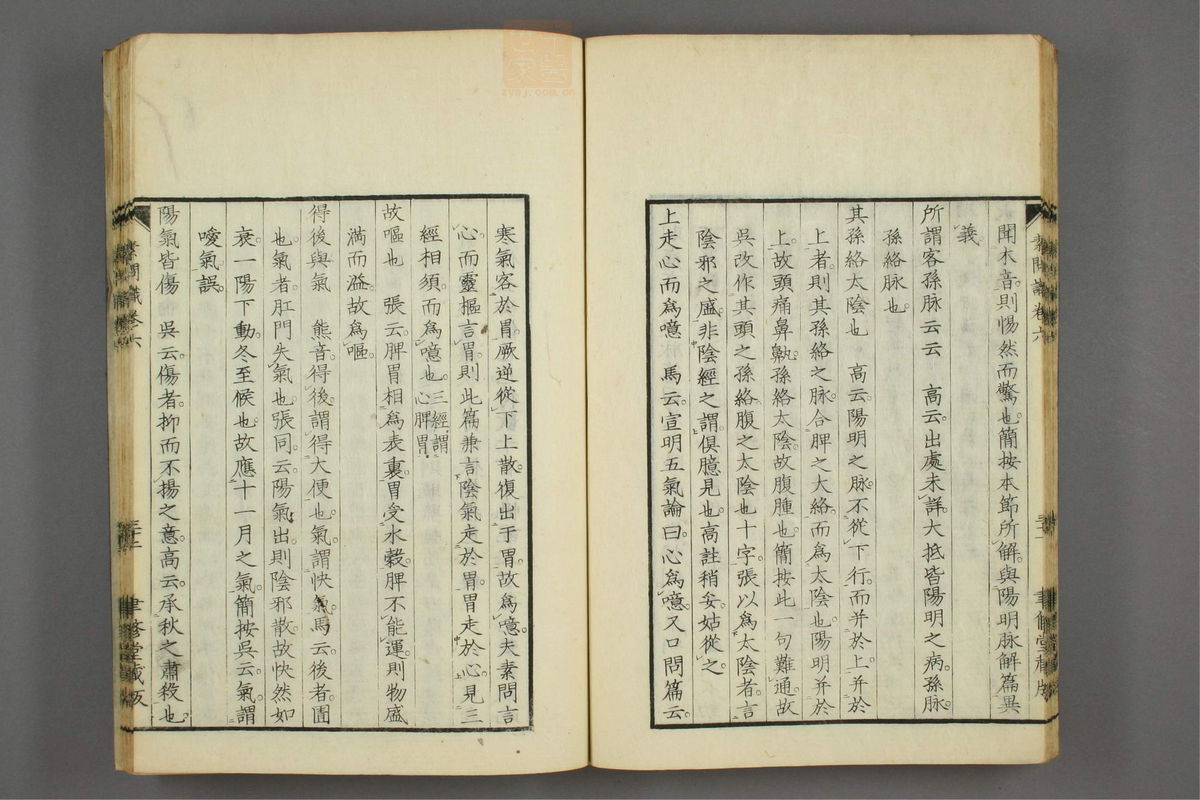 聞木音則惕然而驚也簡按本節所解與陽明脉解篇異
義
所謂客孫脉云云　高云出處未詳大抵皆陽明之病孫脉
孫絡脉也
其孫絡太陰也　高云陽明之脉不從下行而并於上并於
上者則其孫絡之脉合脾之大絡而爲太陰也陽明并於
上故頭痛鼻鼽孫絡太陰故腹腫也簡按此一句難通故
吳改作其頭之孫絡腹之太陰也十字張以爲太陰者言
陰邪之盛非陰經之謂俱臆見也高註稍妥姑從之
上走心而爲噫　馬云宣明五氣論曰心爲噫又口問篇云
素問識卷六
聿修堂藏版
寒氣客於胃厥逆從下上散復出于胃故爲噫夫素問言
心而靈樞言胃則此篇兼言陰氣走於胃胃走於心見三
經相須而爲噫也三經謂心脾胃
故嘔也　張云脾胃相爲表裏胃受水穀脾不能運則物盛
滿而溢故爲嘔
得後與氣　熊音得後謂得大便也氣謂快氣馬云後者圊
也氣者肛門失氣也張同云陽氣出則陰邪散故快然如
衰一陽下動冬至候也故應十一月之氣簡按吳云氣謂
噯氣誤
陽氣皆傷　吳云傷者抑而不揚之意高云承秋之肅殺也
素問識卷六
聿修堂藏版
zysj.com.cn